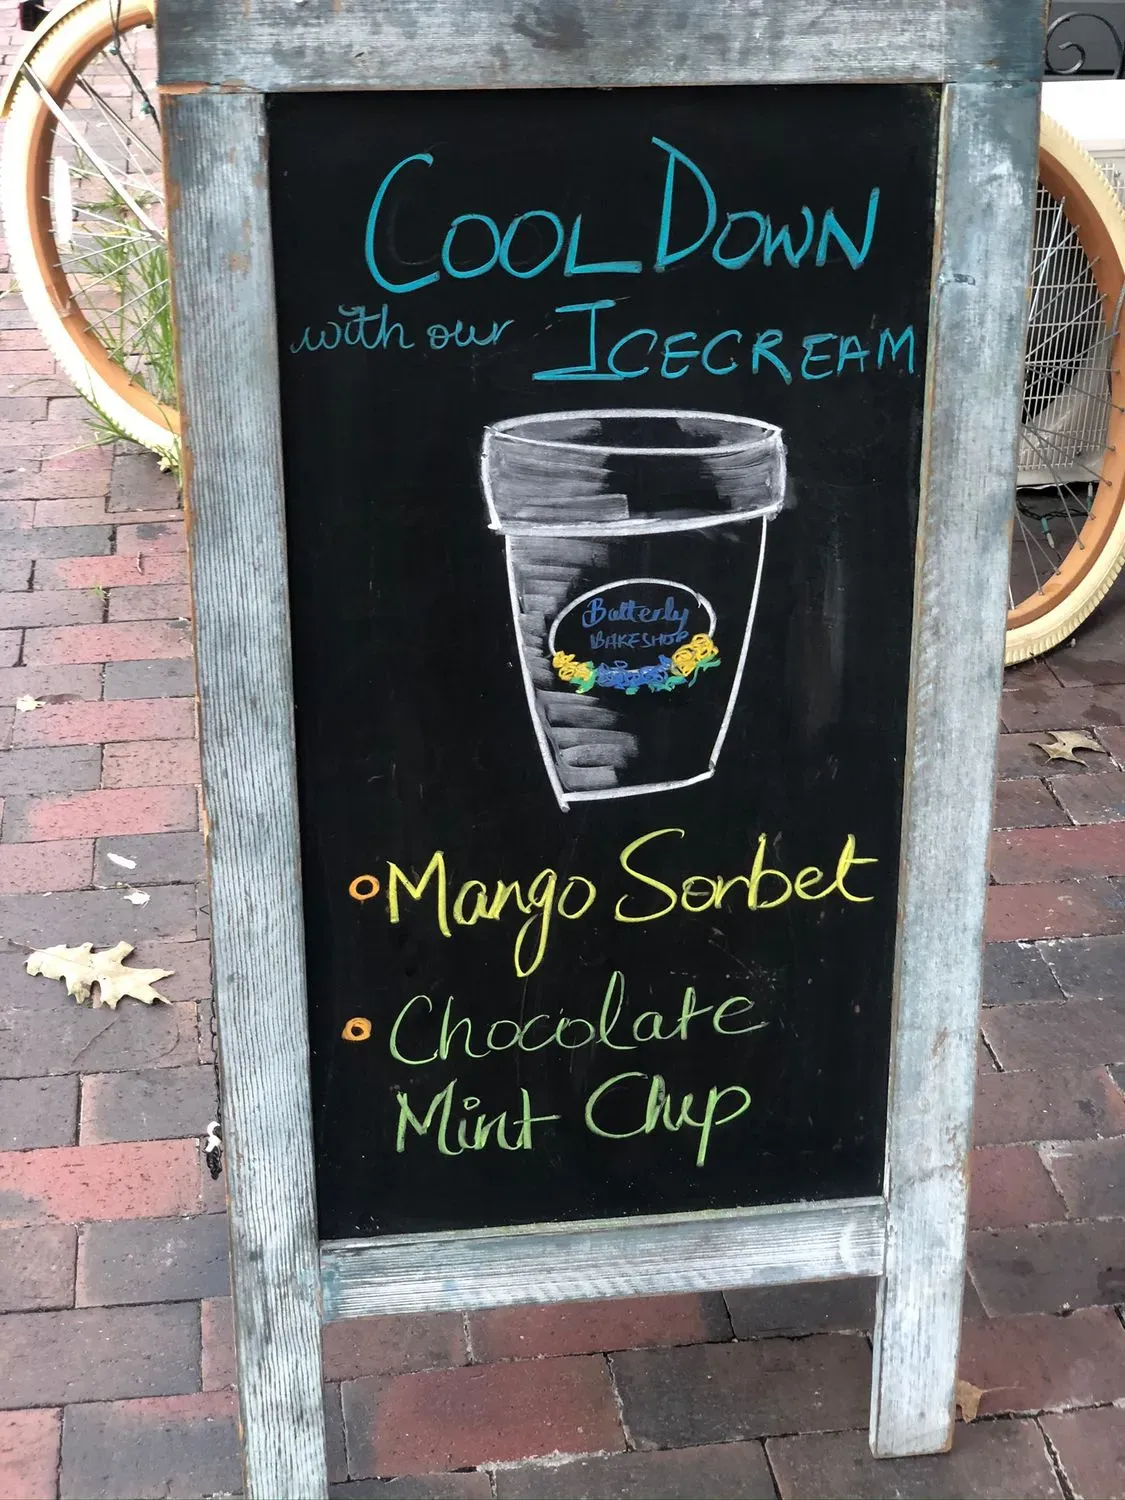 COOL DOWN
with our ICECREAM
Butterly
BAKESHOP
Mango Sorbet
Chocolate
Mint Chip